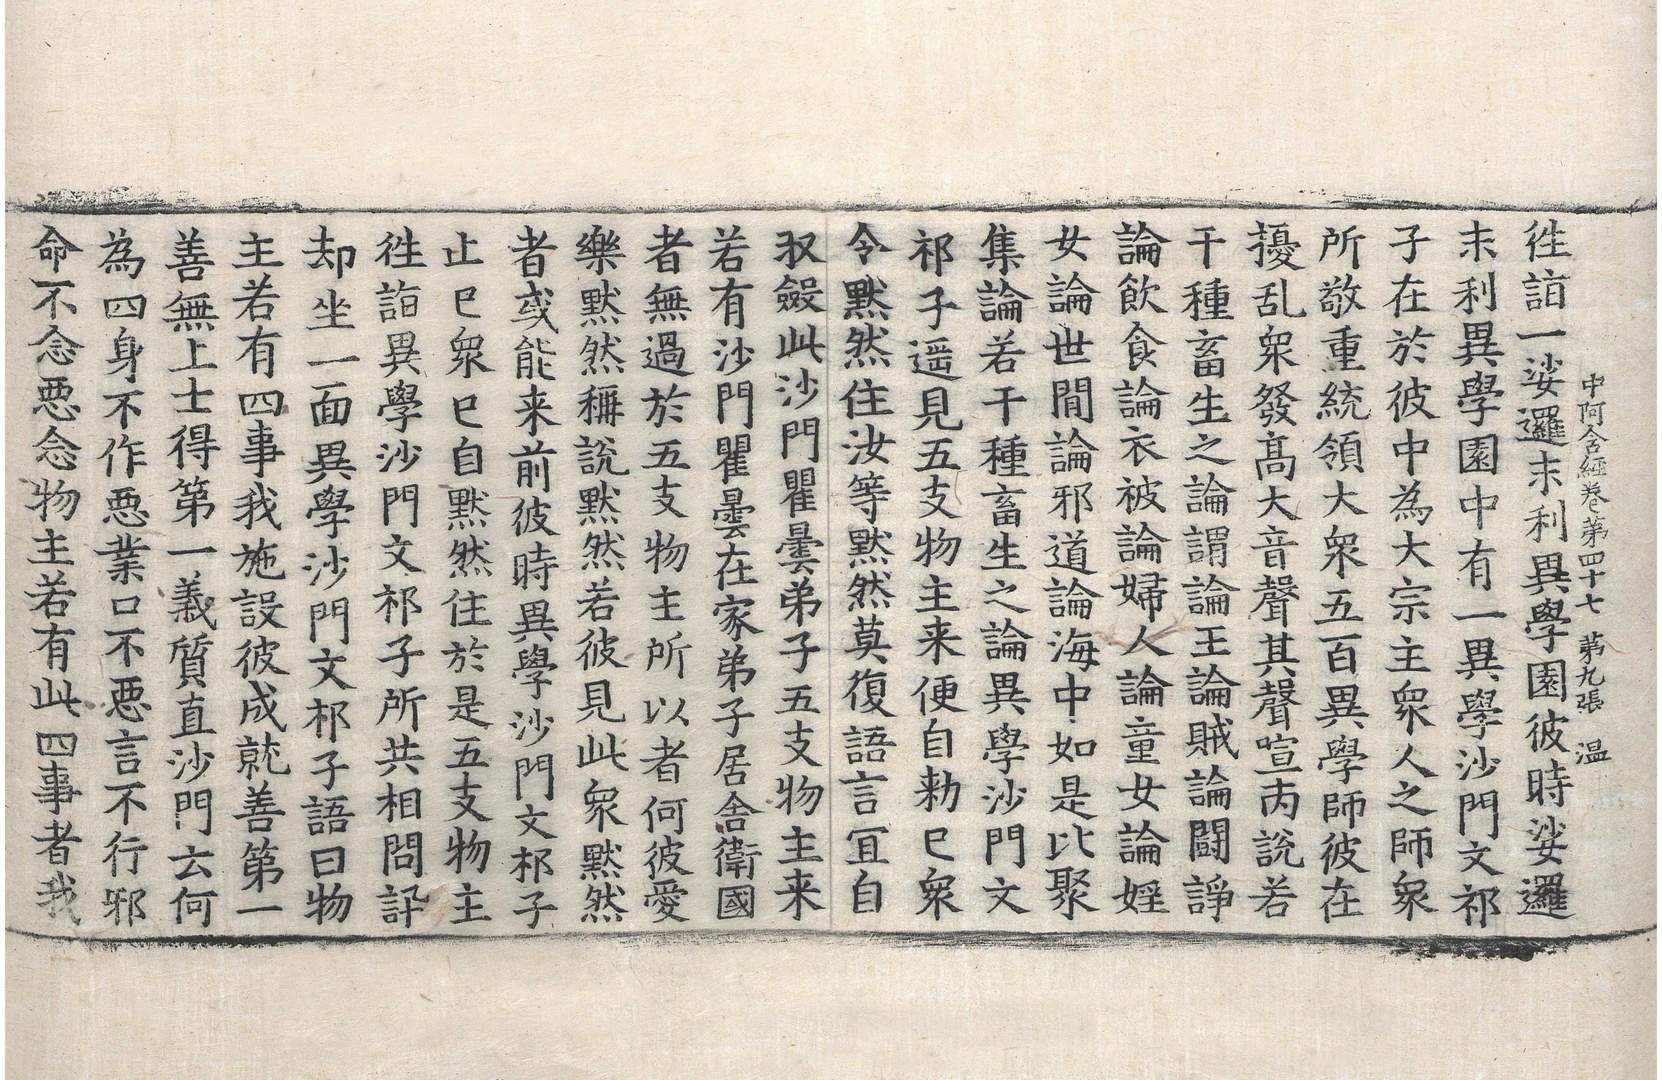 中阿含經卷第四十七 第九張 温
徃詣一娑邏末利異學園彼時娑邏
末利異學園中有一異學沙門文祁
子在於彼中為大宗主衆人之師衆
所敬重統領大衆五百異學師彼在
擾乱衆發髙大音聲其聲喧丙說若
干種畜生之論謂論王論賊論闘諍
論飲食論衣被論婦人論童女論婬
女論世間論邪道論海中如是比聚
集論若干種畜生之論異學沙門文
祁子遥見五支物主来便自勑已衆
令黙然住汝等黙然莫復語言冝自
収斂此沙門瞿曇弟子五支物主来
若有沙門瞿曇在家弟子居舎衛國
者無過於五支物主所以者何彼愛
樂黙然稱說黙然若彼見此衆黙然
者或能来前彼時異學沙門文祁子
止已衆已自黙然住於是五支物主
徃詣異學沙門文祁子所共相問訊
却坐一面異學沙門文祁子語曰物
主若有四事我施設彼成就善第一
善無上士得第一義質直沙門云何
為四身不作悪業口不悪言不行邪
命不念悪念物主若有此四事者我